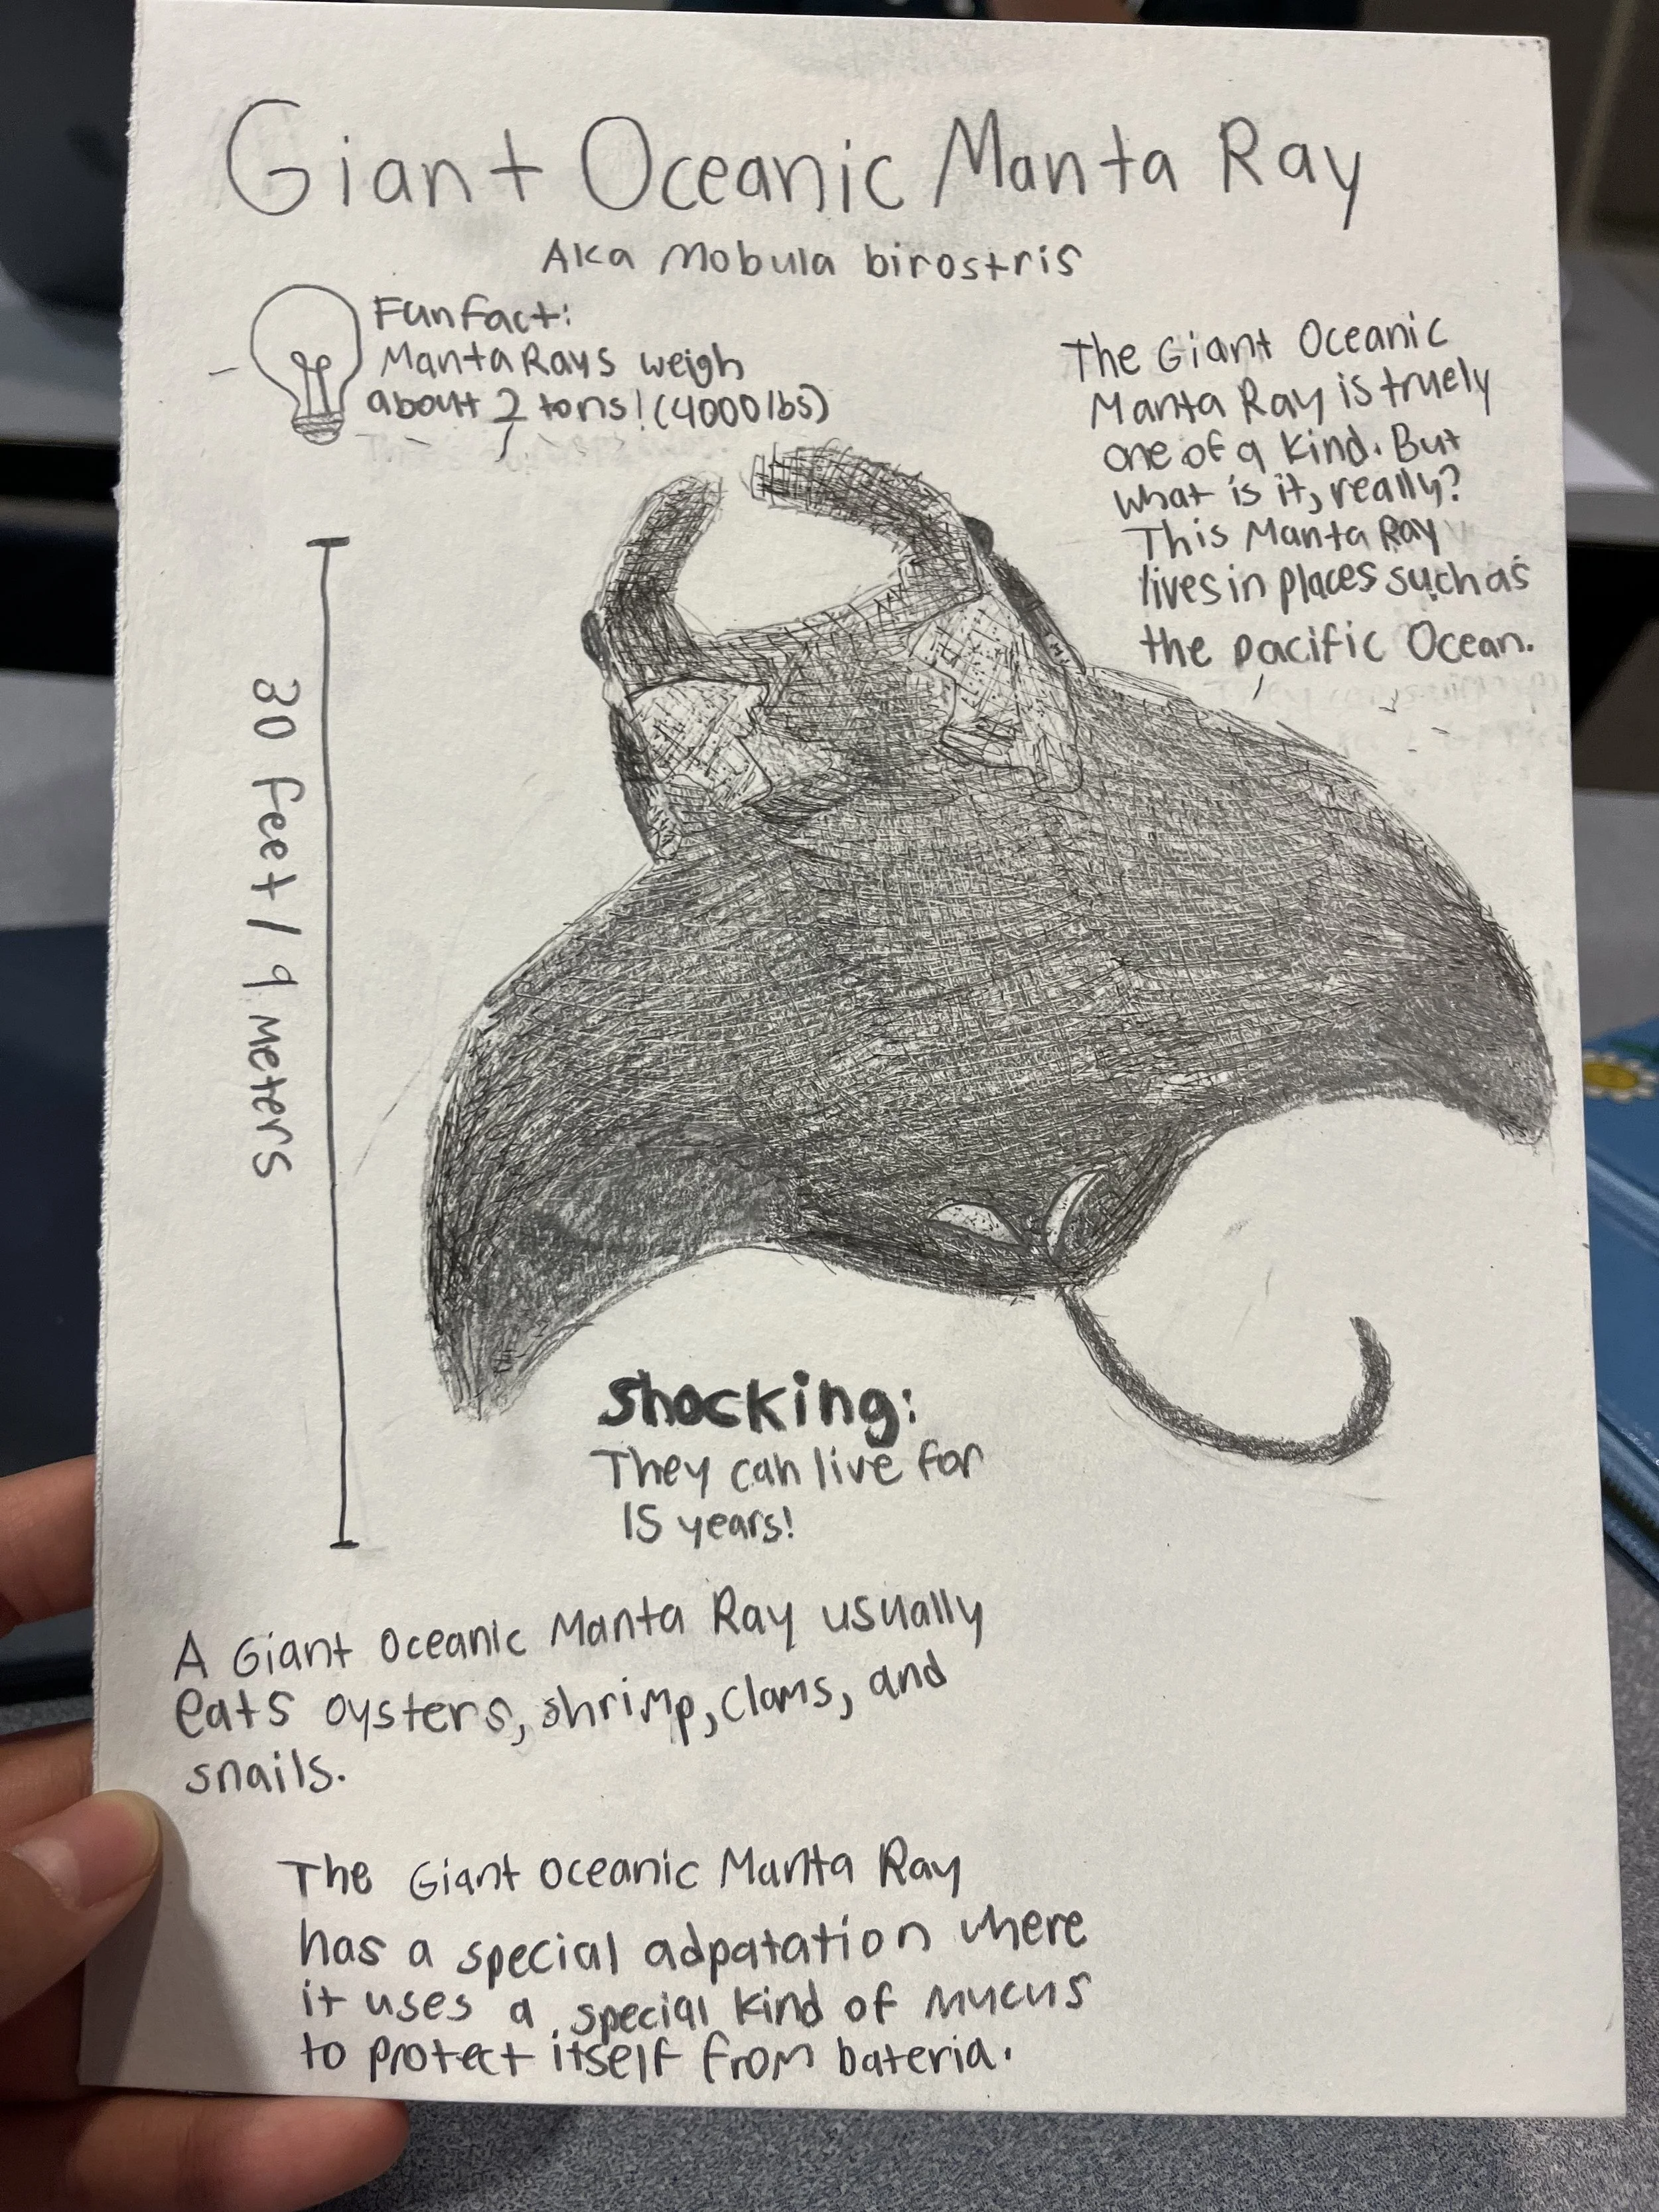 Giant Oceanic Manta Ray
Aka Mobula birostris
Fun fact:
Manta Rays weigh
about 2 tons! (4000 lbs)
The Giant Oceanic
Manta Ray is truely
one of a kind. But
what is it, really?
This Manta Ray
lives in places such as
the pacific Ocean.
30 feet / 9 meters
Shocking:
They can live for
15 years!
A Giant Oceanic Manta Ray usually
eats oysters, shrimp, clams, and
snails.
The Giant Oceanic Manta Ray
has a special adpatation where
it uses a special kind of mucus
to protect itself from bateria.